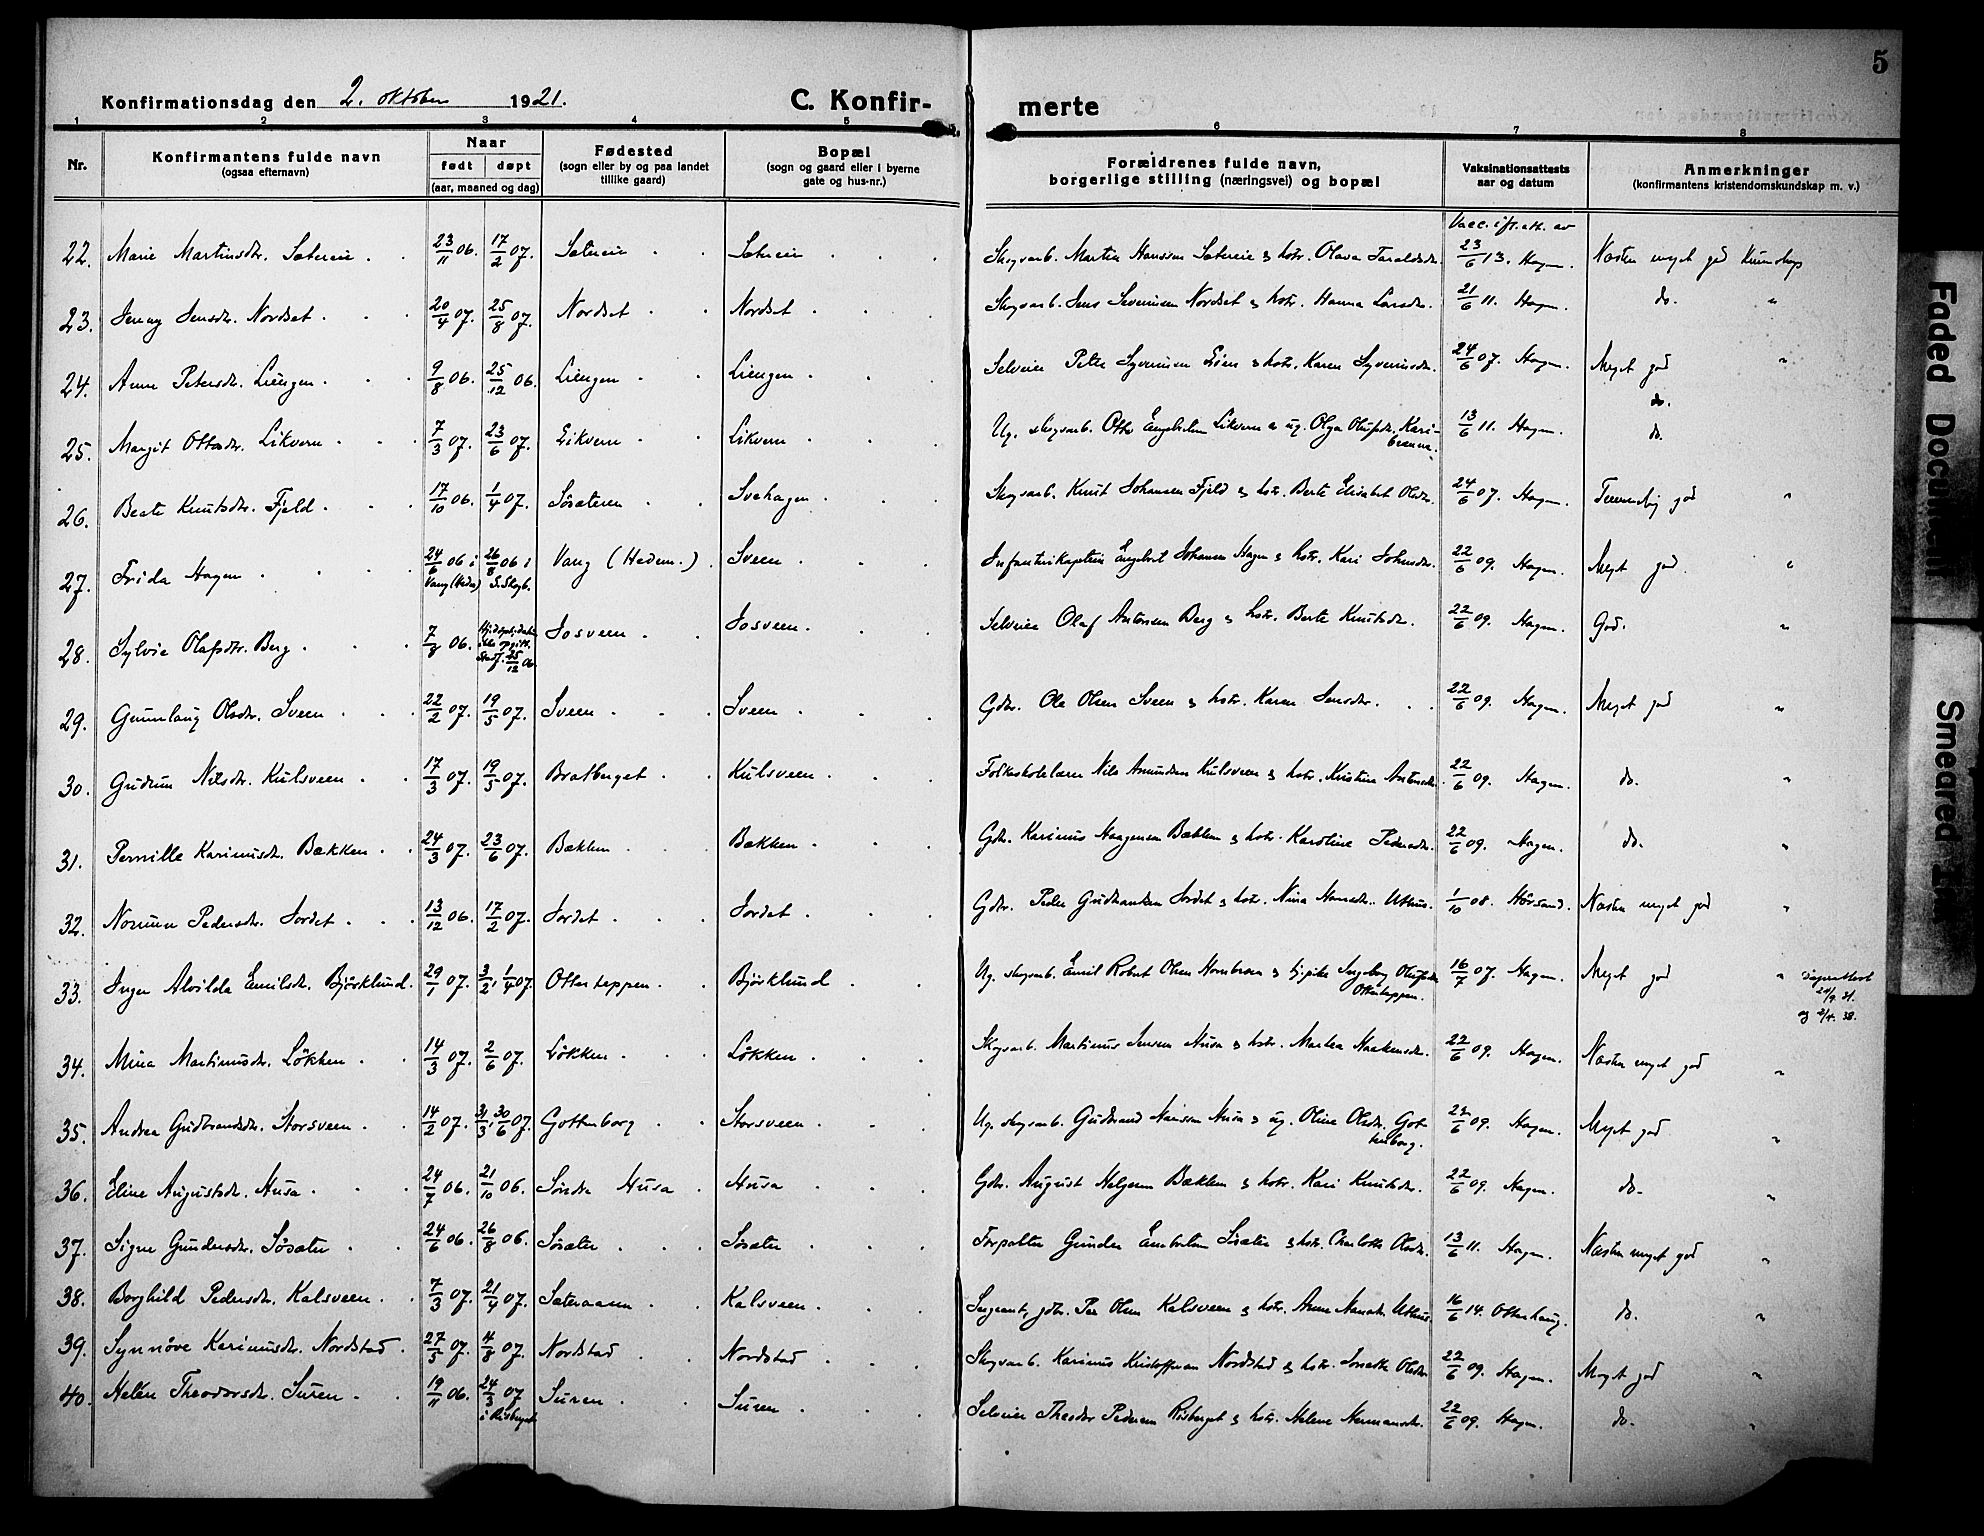 5
Konfirmationsdag den 2. oktober 1921.
C. Konfir-
merte
1 2 3 4 5 6 7 8
Nr.
Konfirmantens fulde navn
(ogsaa efternavn)
Naar
født døpt
(aar, maaned og dag)
Fødested
(sogn eller by og paa landet
tillike gaard)
Bopæl
(sogn og gaard eller i byerne
gate og hus-nr.)
Forældrenes fulde navn,
borgerlige stilling (næringsvei) og bopæl
Vaksinationsattests
aar og datum
Anmerkninger
(konfirmantens kristendomskundskap m. v.)
Vacc. ifl. att. av
22. Marie Martinsdtr. Sætereie 23/11 06. 17/2 07. Sætereie Sætereie Skogsarb. Martin Hanssen Sætereie & hstr. Olava Taraldsdtr. 23/6 13. Hagen. Næsten meget god Kundskap
23. Jenny Jensdtr. Nordset 20/4 07. 25/8 07. Nordset Nordset Skogsarb. Jens Severinsen Nordset & hstr. Hanna Larsdtr. 21/6 11. Hagen. do. "
24. Anne Petersdtr. Liengen 9/8 06. 25/12 06. Liengen Liengen Selveier Peter Syverinsen Lien & hstr. Karen Syverinsdtr. 24/6 07. Hagen. Meget god "
do.
25. Margit Ottosdtr. Likvern 7/3 07. 23/6 07. Likvern Likvern Ug. skogsarb. Otto Engebretsen Likvern & ug. Olga Olufsdtr. Kari-
branna. 13/6 11. Hagen. do.
26. Beate Knutsdtr. Fjeld 17/10 06. 1/4 07. Søsæteren Svehagen Skogsarb. Knut Johansen Fjeld & hstr. Berte Elisabet Olsdtr. 24/6 07. Hagen. Temmelig god "
27. Frida Hagen 24/6 06 i 26/8 06 i Vang (Hedem.) Sveen Infanterikaptein Engebret Johansen Hagen & hstr. Kari Johnsdtr. 22/6 09. Hagen. Meget god "
Vang (Hedm) S. Skogb.
28. Sylvia Olafsdtr. Berg 7/7 06. Hjdøpt, dato
ikke opgitt.
Stadf. 25/12 06. Josveen Josveen Selveier Olaf Antonsen Berg & hstr. Berte Knutsdtr. 22/6 09. Hagen. God. "
29. Gunnlaug Olsdtr. Sveen 22/2 07. 19/5 07. Sveen Sveen Gdbr. Ole Olsen Sveen & hstr. Karen Jensdtr. 22/6 09. Hagen. Meget god "
30. Gudrun Nilsdtr. Kulsveen 17/3 07. 19/5 07. Bratberget Kulsveen Folkeskolelærer Nils Amundsen Kulsveen & hstr. Kristine Antonsdtr. 22/6 09. Hagen. do. "
31. Pernille Karinusdtr. Bækken 24/3 07. 23/6 07. Bækken Bækken Gdbr. Karinus Haagensen Bækken & hstr. Karoline Pedersdtr. 22/6 09. Hagen. do. "
32. Norunn Pedersdtr. Jordet 13/12 06. 17/2 07. Jordet Jordet Gdbr. Peder Gudbrandsen Jordet & hstr. Nina Hansdtr. Uthus. 1/10 08. Hörsand. Næsten meget god "
33. Inger Alvilda Emilsdtr. Björklund. 29/1 07. 3/2, 1/4 07. Ottertappen Björklund Ug. skogsarb. Emil Robert Olsen & pike Ingeborg Olufsdtr.
Ottertappen. 16/7 07. Hagen. Meget god "
21/9. 31.
og 2/4. 38.
34. Mina Martinusdtr. Løkken 14/3 07. 2/6 07. Løkken Løkken Skogsarb. Martinus Jensen Husa & hstr. Martea Haakensdtr. 22/6 09. Hagen. Næsten meget god "
35. Andrea Gudbrandsdtr. Storsveen 14/2 07. 31/3, 30/6 07. Gottenborg Storsveen Ug. skogsarb. Gudbrand Hansen Husa & ug. Oline Olsdtr. Got-
tenborg. 22/6 09. Hagen. Meget god "
36. Eline Augustsdtr. Husa 24/7 06. 21/10 06. Söndre Husa Husa Gdbr. August Helgesen Bækken & hstr. Kari Knutsdtr. 22/6 09. Hagen. do. "
37. Signe Gundersdtr. Søsæter 24/6 06. 26/8 06. Søsæter Søsæter Forpakter Gunder Embretsen Søsæter & hstr. Charlotte Olsdtr. 13/6 11. Hagen. Næsten meget god "
38. Borghild Pedersdtr. Kalsveen 7/3 07. 21/4 07. Sæteraaen Kalsveen Sergeant, gdbr. Per Olsen Kalsveen & hstr. Anne Hansdtr. Uthus 16/6 14. Otterhaug. do. "
39. Synnöve Karinusdtr. Nordstad 27/5 07. 4/8 07. Nordstad Nordstad Skogsarb. Karinus Kristoffersen Nordstad & hstr. Josette Olsdtr. 22/6 09. Hagen. Meget god "
40. Helén Theodorsdtr. Suren 19/11 06. 24/3 07 Suren Suren Selveier Theodor Pedersen Risberget & hstr. Helene Hermansdtr. 22/6 09. Hagen. do. "
i Risberget
Faded Document
Smeared Ink